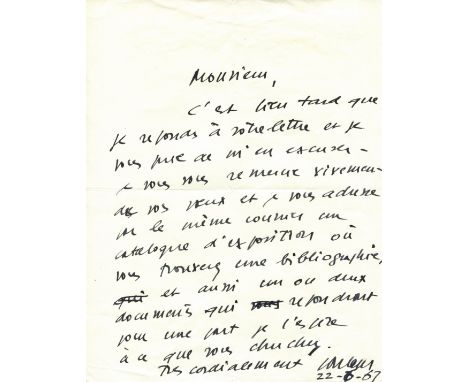 Monsieur,
C'est bien tard que
je réponds à votre lettre et je
vous prie de m'en excuser -
je vous remercie vivement
de vos vœux et je vous adresse
par le même courrier un
catalogue d'exposition où
vous trouverez une bibliographie,
et aussi un ou deux
documents qui répondront
pour une part je l'espère
à ce que vous cherchez.
Très cordialement
22-6-67